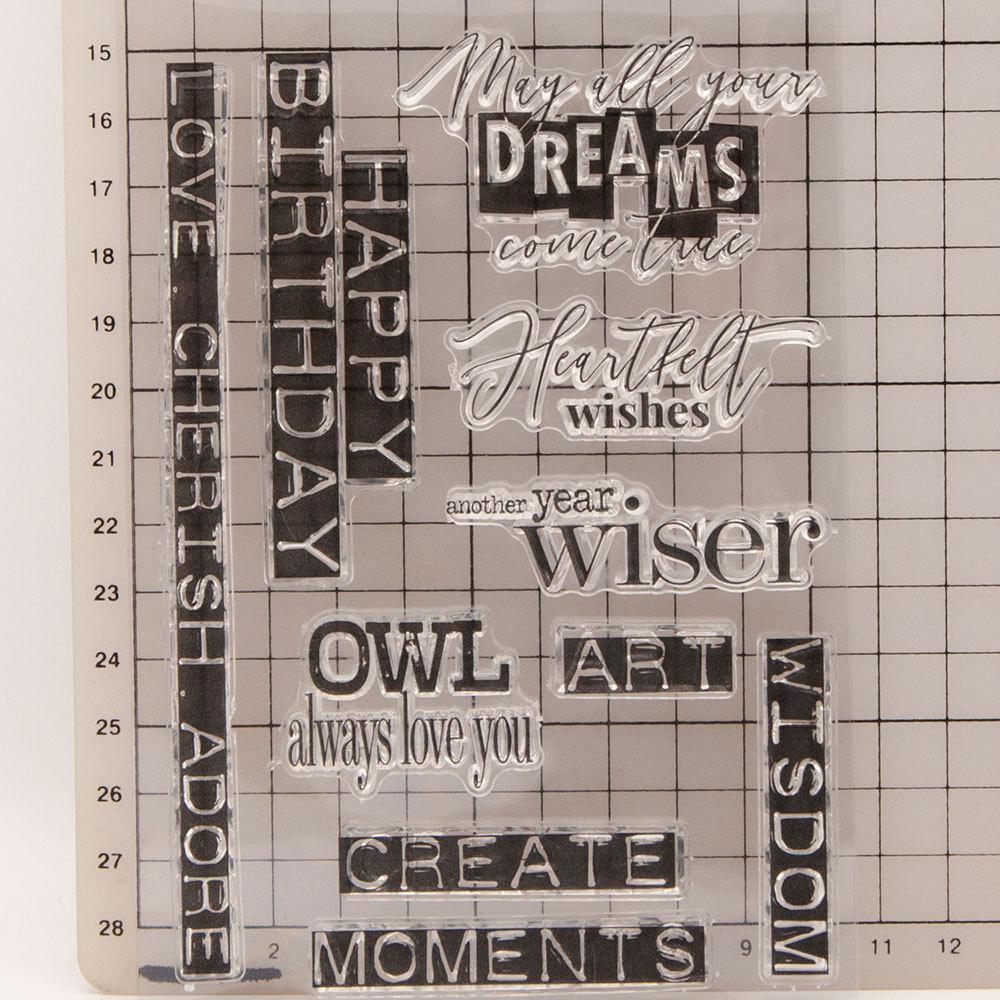 LOVE . CHERISH . ADORE
BIRTHDAY
HAPPY
May all your
DREAMS
come true
Heartfelt
wishes
another year
wiser
OWL
always love you
ART
WISDOM
CREATE
MOMENTS
15
16
17
18
19
20
21
22
23
24
25
26
27
28
2
9
11
12